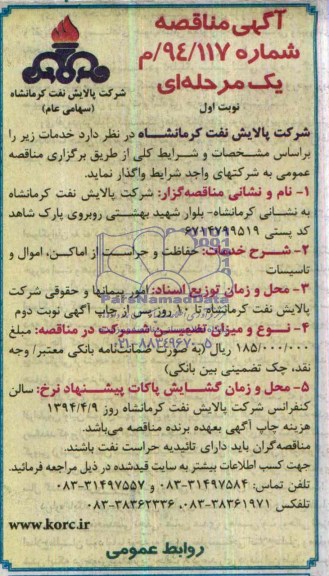 آگهی مناقصه
شماره ۹۴/۱۱۷/م
یک مرحله‌ای
نوبت اول
شرکت پالایش نفت کرمانشاه
(سهامی عام)
شرکت پالایش نفت کرمانشاه در نظر دارد خدمات زیر را
براساس مشخصات و شرایط کلی از طریق برگزاری مناقصه
عمومی به شرکتهای واجد شرایط واگذار نماید.
۱- نام و نشانی مناقصه‌گزار: شرکت پالایش نفت کرمانشاه
به نشانی کرمانشاه- بلوار شهید بهشتی روبروی پارک شاهد
کد پستی ۶۷۱۴۷۹۹۵۱۹
۲- شرح خدمات: حفاظت و حراست از اماکن، اموال و
تاسیسات
۳- محل و زمان توزیع اسناد: امور پیمانها و حقوقی شرکت
پالایش نفت کرمانشاه تا ۱۰ روز پس از چاپ آگهی نوبت دوم
۴- نوع و میزان تضمین شرکت در مناقصه: مبلغ
۱۸۵/۰۰۰/۰۰۰ ریال (به صورت ضمانت‌نامه بانکی معتبر/ وجه
نقد، چک تضمینی بین بانکی)
۵- محل و زمان گشایش پاکات پیشنهاد نرخ: سالن
کنفرانس شرکت پالایش نفت کرمانشاه روز ۱۳۹۴/۴/۹
هزینه چاپ آگهی بعهده برنده مناقصه می‌باشد.
مناقصه‌گران باید دارای تائیدیه حراست نفت باشند.
جهت کسب اطلاعات بیشتر به سایت قیدشده در ذیل مراجعه فرمائید.
تلفن تماس: ۳۱۴۹۷۵۸۴-۰۸۳ و ۳۱۴۹۷۵۵۷-۰۸۳
تلفکس ۳۸۳۶۱۹۷۱-۰۸۳، ۳۸۳۶۲۳۳۶-۰۸۳
www.korc.ir
روابط عمومی
ParsNamadData
۰۲۱-۸۸۳۴۹۶۷۰-۵